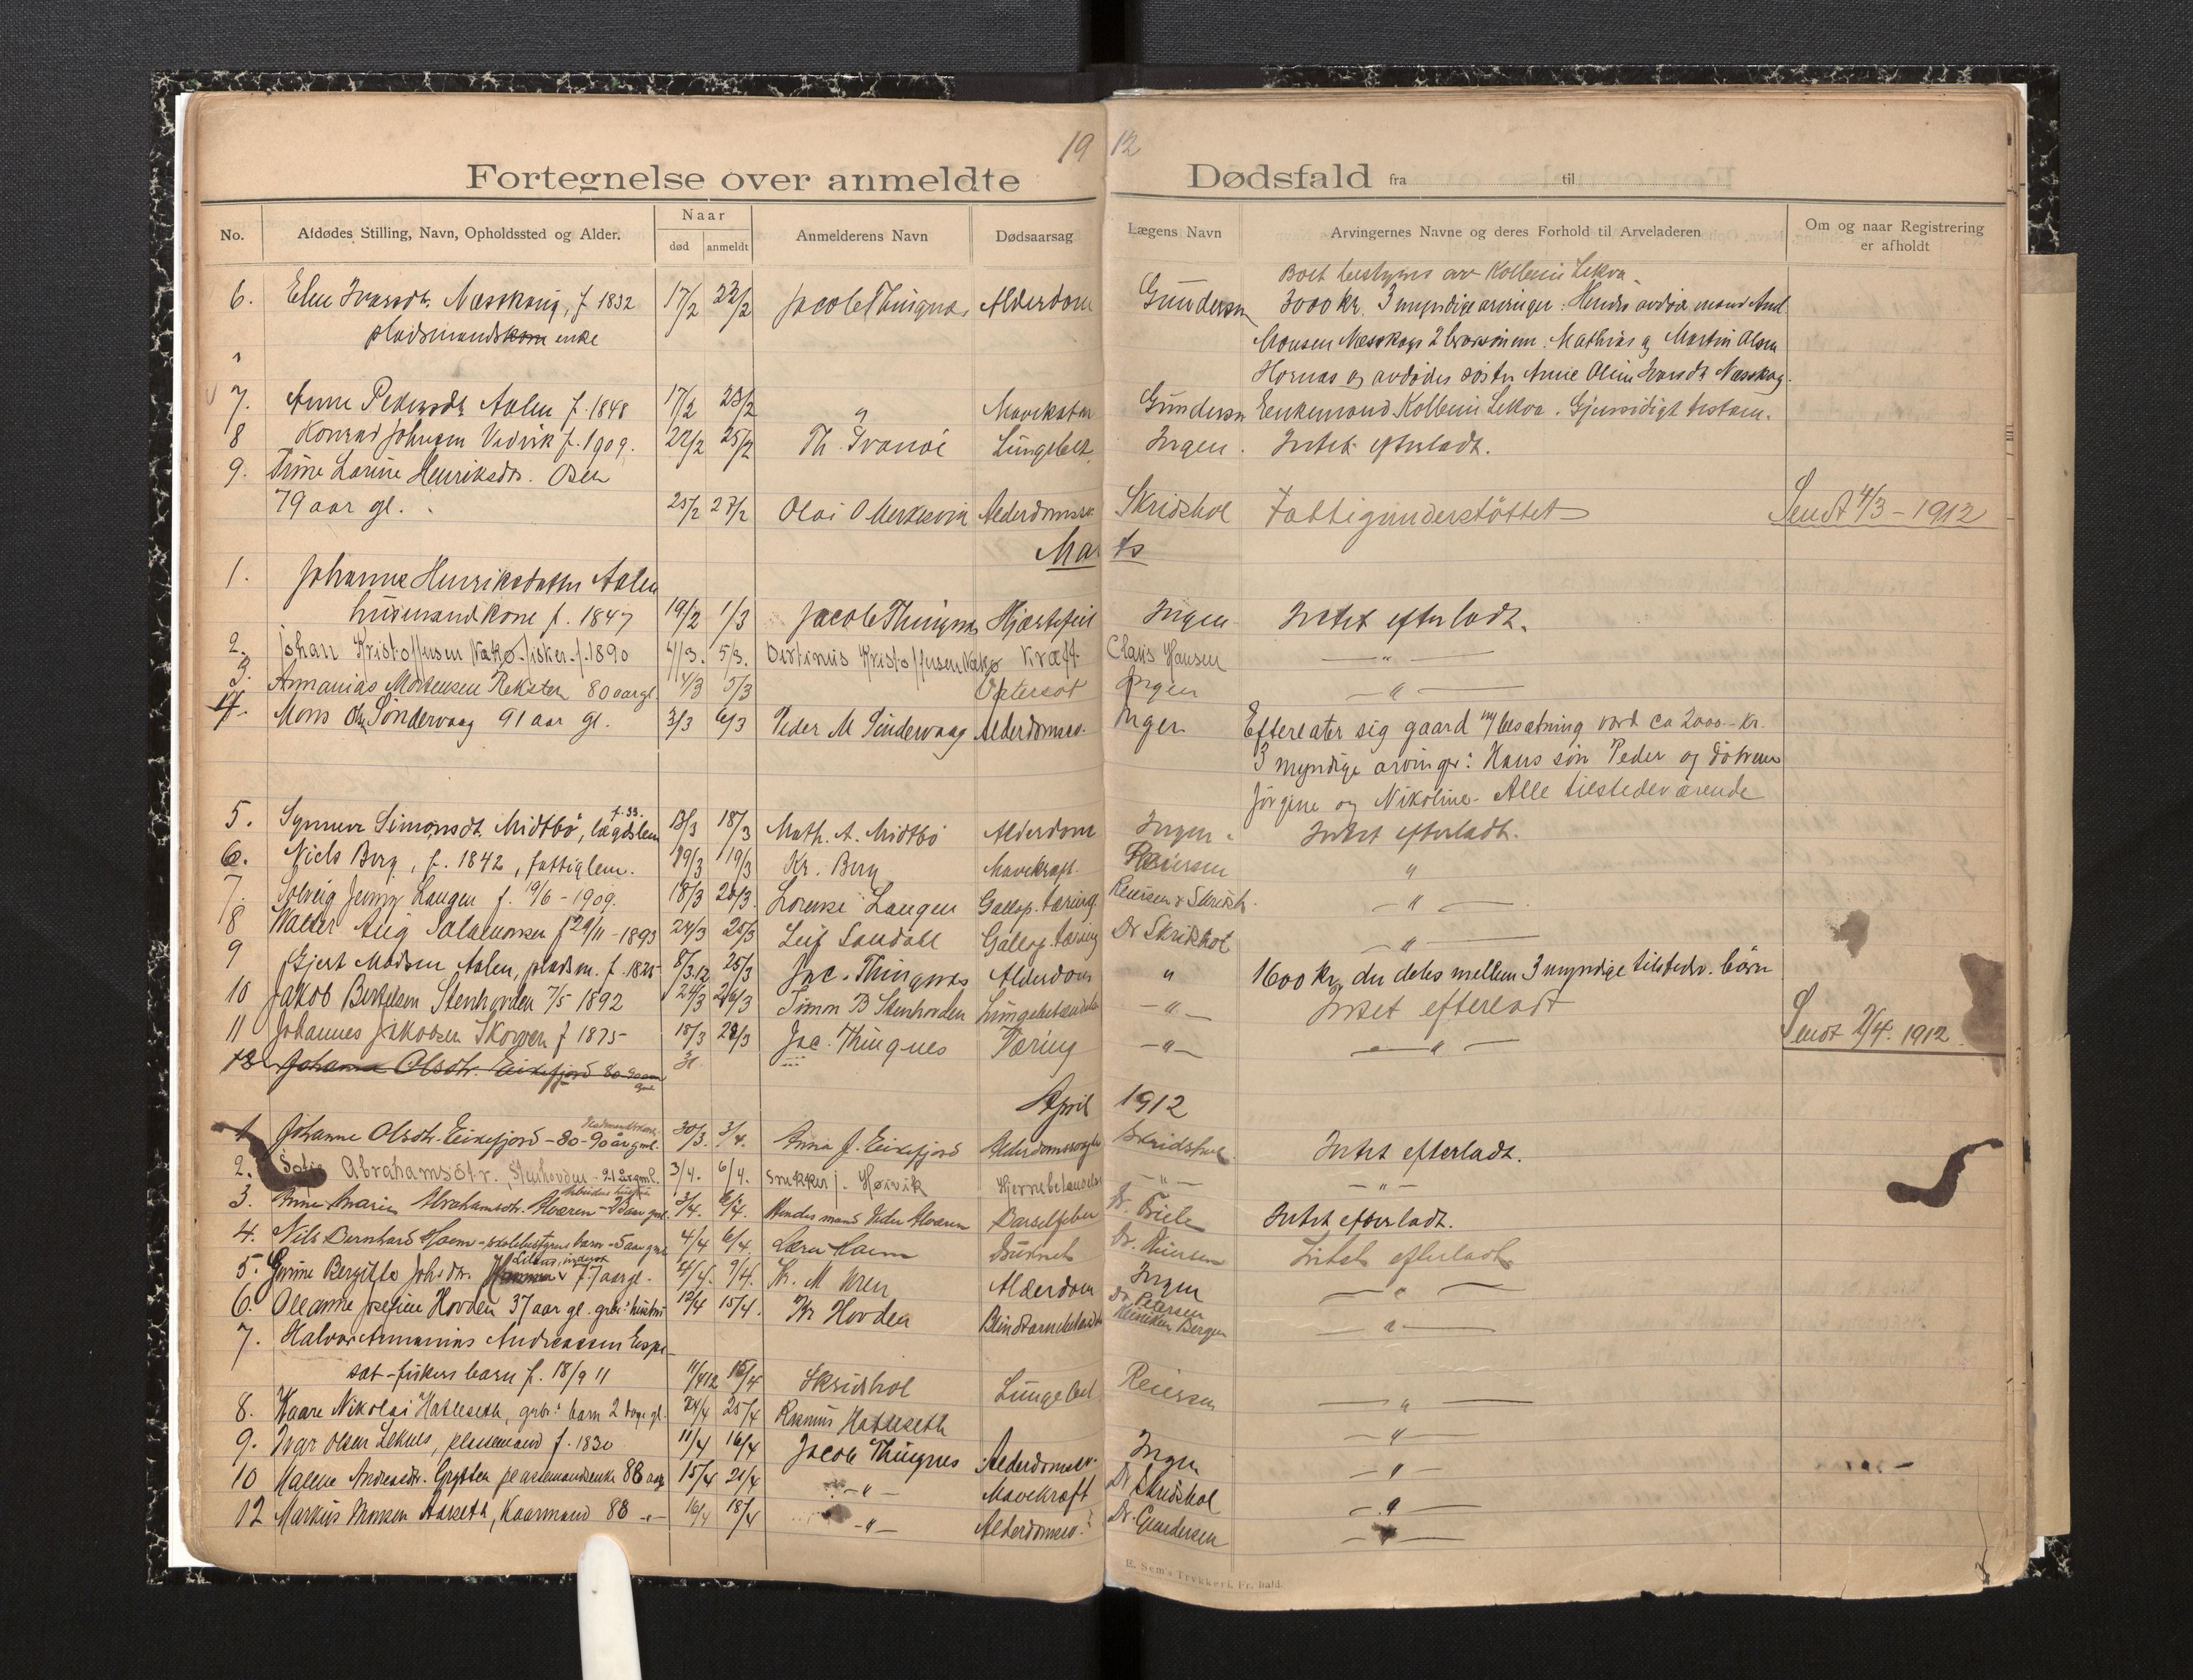 19 12
Fortegnelse over anmeldte Dødsfald fra til
No. Afdødes Stilling, Navn, Opholdssted og Alder. Naar død anmeldt Anmelderens Navn Dødsaarsag Lægens Navn Arvingernes Navne og deres Forhold til Arveladeren Om og naar Registrering er afholdt
Boet bestyres av Kolbein Lekva
6. Elen Ivarsdtr. Næsskaug, f 1832 17/2 22/2 Jacob Thingnæs Alderdom Gundersen 3000 kr. 3 myndige arvinger: Hendes avdøde mand And.
pladsmandskone enke Monsen Næsskogs 2 brorsönner: Mathias og Martin Olsen
Hornæs og avdödes söster Anne Oline Ivarsdtr Næsskog.
7. Anne Pedersdtr Aalen f. 1848 17/2 23/2 " Mavekatar Gundersen Enkemand Kolbein Lekva. Gjensidigt testam.
8 Konrad Johnsen Vadvik f. 1909. 22/2 25/2 Th. Svanöe Lungebet. Ingen. Intet efterladt.
9. Trine Larine Henriksdtr. Osen
79 aar gl. 25/2 27/2 Olai O Merkesvik Alderdomssv. Skridshol Fattigunderstöttet Sendt 4/3 - 1912
Marts
1. Johanne Henriksdatter Aalen
husmandskone f. 1847 19/2 1/3 Jacob Thingnæs Hjærtefeil Ingen Intet efterladt.
2. Johan Kristoffersen Vakø fisker f. 1890 4/3. 5/3. Kristoffersen Vakø Kræft Claus Hansen - " -
3. Annanias Mortensen Rekster 80 aar gl 4/3 5/3 Ingen - " -
4. Mons Ols. Söndervaag 91 aar gl. 3/3 6/3 Peder M Söndervaag Alderdomssv. Ingen Efterlater sig gaard m/besætning værd ca 2000.- kr.
3 myndige arvinger: Hans sön Peder og dötrene
Jörgine og Nikoline. Alle tilstedeværende
5. Synneve Simonsdt. Midtbö, lægdslem f. 33. 13/3 18/3 Math. A. Midtbö Alderdom Ingen. Intet efterladt.
6. Niels Berg, f. 1842, fattiglem. 19/3 19/3 Kr. Berg Mavekræft. Reiersen "
7. Solveig Jenny Langen f. 19/6 - 1909. 18/3 20/3. Lorense Langen Gallop. tæring. Reiersen & Skridsh. - " -
8 Walter Aug Salamonsen f 29/11 - 1893 24/3 25/3 Leif Sandall Gallop. tæring Dr Skridshol - " -
9 Gjert Madsen Aalen, pladsm. f. 1825 8/3.12 25/3 Jac. Thingnæs Alderdom " 1600 kr, der deles mellem 3 myndige tilstedev. börn
10 Jakob Bertelsen Stenhovden 7/5 1892 24/3 26/3 Simon B Stenhovden Lungebetændelse - " - Intet efterladt
11 Johannes Jakobsen Skorpen f 1875 18/3 28/3 Jac. Thingnes Tæring - " - - " - Sendt 2/4. 1912
12 Johanne Olsdtr. Eikefjord 80-90 aar gml
April 1912
1 Johanne Olsdtr. Eikefjord - 80-90 år gml. 30/3. 3/4. Anna J. Eikefjord Skridshol. Intet efterladt.
2. Sofie Abrahamsdtr. Stenhovden - 21 år gml. 3/4. 6/4. Snekker J. Høivik Hjernebetændelse - " - - " -
3. Anne Marie Abrahamsdtr. Hværen 3/4. 6/4. Hendes mand Peder Hværen Barselfeber Dr. Friele Intet efterladt.
4. Nils Bernhard Hoem - skolebestyrers barn - 5 aar gml 4/4 6/4. Lærer Hoem Druknet Dr. Reiersen Intet efterladt
5. Gurine Bergitte Johsdtr. 77 aar gl. 4/4. 9/4. Kr. M Uren Alderdom Ingen - " -
6. Oleanne Josefine Hovden 37 aar gl. grbr.: hustru 12/4 15/4. Kr Hovden Blindtarmbetændelse Dr Petersen Klinikken Bergen - " -
7. Halvor Annanias Andreassen Espe-
sæt - fiskers barn f. 18/9 11 11/4 12 16/4 Skridshol Lungebet Reiersen - " -
8. Kaare Nikolai Hatleseth, grbr.: barn 2 dage gl. 24/4 25/4 Rasmus Hatleseth - " -
9. Ivar Olsen Leknes, plassemand f. 1830 11/4 16/4 Jacob Thingnes Alderdomssv. Ingen - " -
10 Malene Andreasdtr. Grytten plassemandsenke 88 aar 15/4 21/4 - " - Mavekræft Dr Skridshol - " -
12 Markus Monsen Aarseth, Kaarmand 88 - " - 16/4 18/4 - " - Alderdomssv. Dr. Gundersen - " -
E. Sem's Trykkeri, Fr.hald.